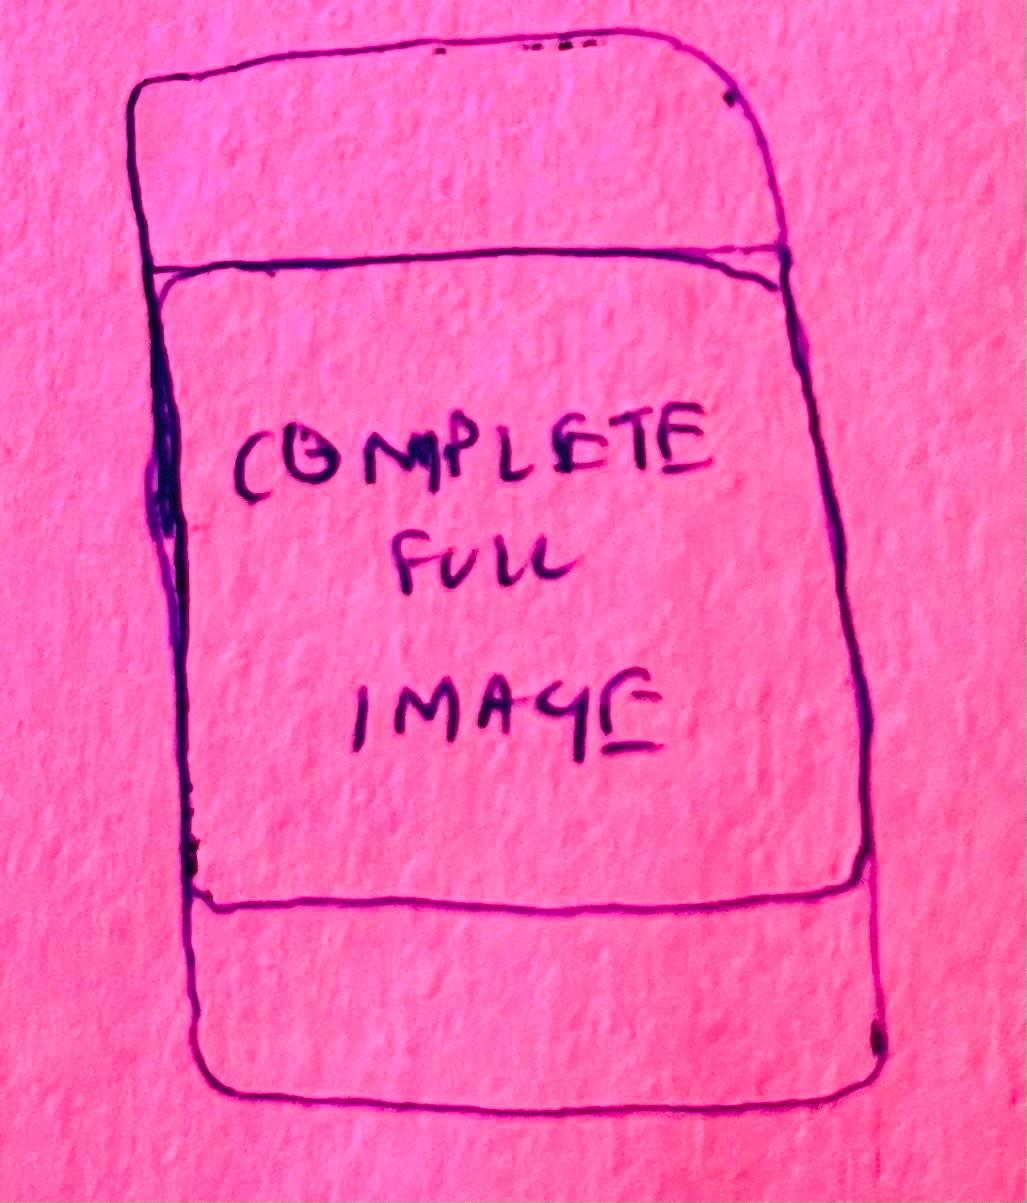 COMPLETE
FULL
IMAGE